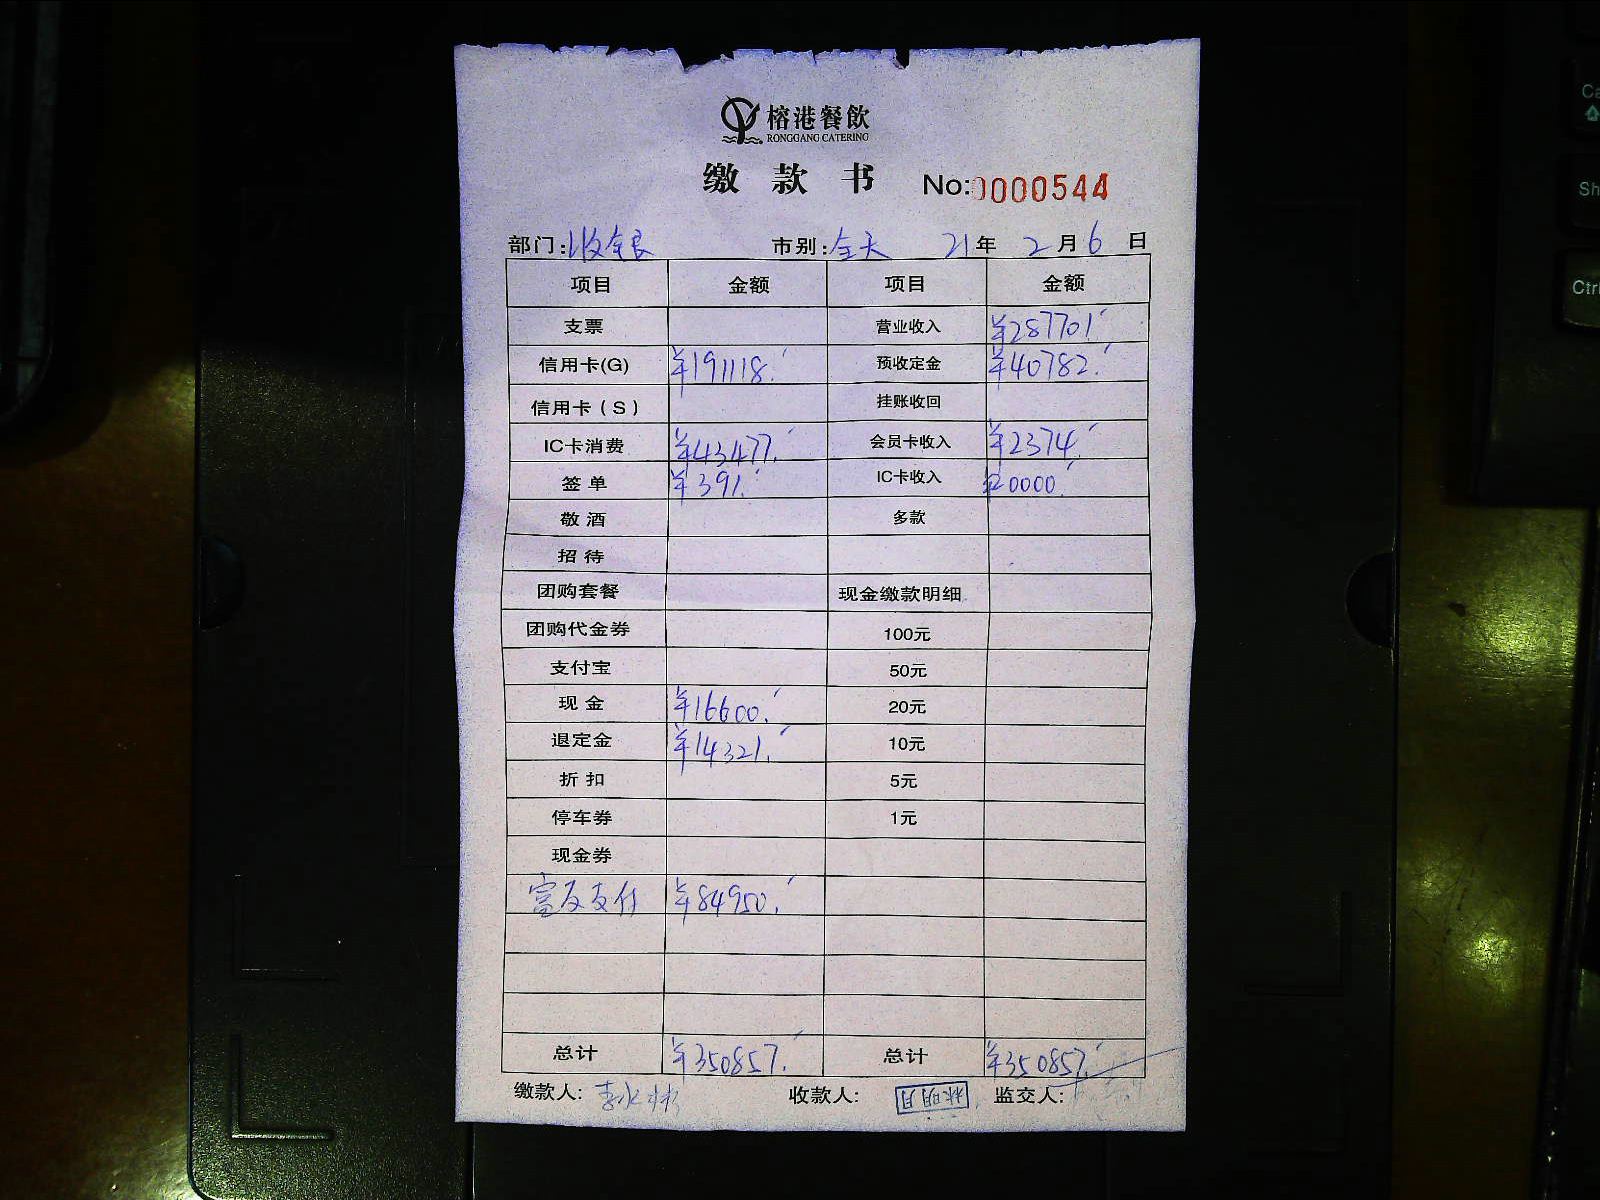 榕港餐飲
RONGGANG CATERING
缴 款 书 No:0000544
部门:收银 市别:全天 21年 2月6日
项目 金额 项目 金额
支票 营业收入 ¥287701.
信用卡(G) ¥191118. 预收定金 ¥40782.
信用卡(S) 挂账收回
IC卡消费 ¥43477. 会员卡收入 ¥2374.
签单 ¥391. IC卡收入 ¥20000.
敬酒 多款
招待
团购套餐 现金缴款明细
团购代金券 100元
支付宝 50元
现金 ¥16600. 20元
退定金 ¥14321. 10元
折扣 5元
停车券 1元
现金券
富友支付 ¥84950.
总计 ¥350857. 总计 ¥350857.
缴款人: 收款人: 林明月 监交人:
Ca
Sh
Ctrl